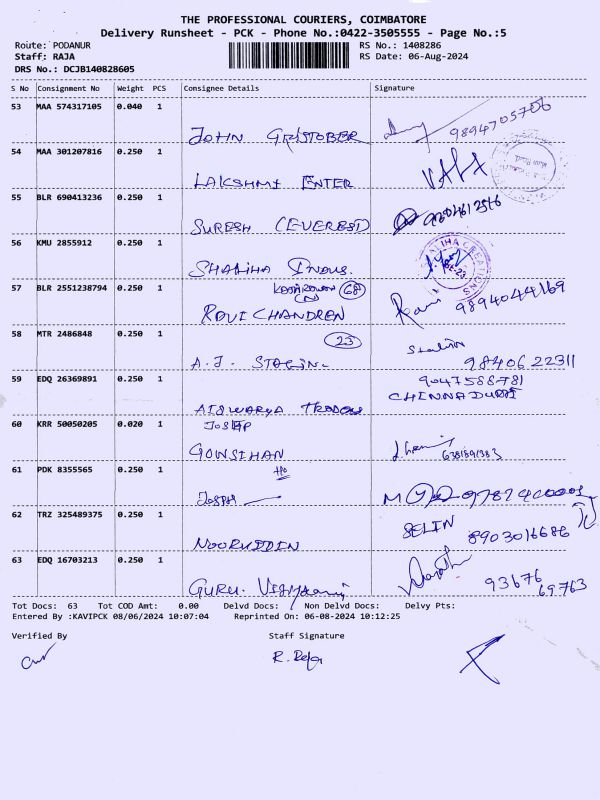 THE PROFESSIONAL COURIERS, COIMBATORE
Delivery Runsheet - PCK - Phone No.:0422-3505555 - Page No.:5
Route: PODANUR RS No.: 1408286
Staff: RAJA RS Date: 06-Aug-2024
DRS No.: DCJB140828605
S No Consignment No Weight PCS Consignee Details Signature
53 MAA 574317105 0.040 1
JOHN 9894705706
54 MAA 301207816 0.250 1
LAKSHMI ENTER
55 BLR 690413236 0.250 1
SURESH (EVEREST)
56 KMU 2855912 0.250 1
SHALIHA INDUS.
57 BLR 2551238794 0.250 1 68
RAVICHANDREN Ravi 9894044169
58 MTR 2486848 0.250 1 23
A.J. Stalin 98406 22311
59 EDQ 26369891 0.250 1 9047588781
AISWARYA CHINNADURAI
60 KRR 50050205 0.020 1
GOWSIHAN
61 PDK 8355565 0.250 1 HO
JOSPH
62 TRZ 325489375 0.250 1 SELIN
NOORUDDIN 8903016686
63 EDQ 16703213 0.250 1
GURU. 93676 69763
Tot Docs: 63 Tot COD Amt: 0.00 Delvd Docs: Non Delvd Docs: Delvy Pts:
Entered By :KAVIPCK 08/06/2024 10:07:04 Reprinted On: 06-08-2024 10:12:25
Verified By Staff Signature
R. Raja